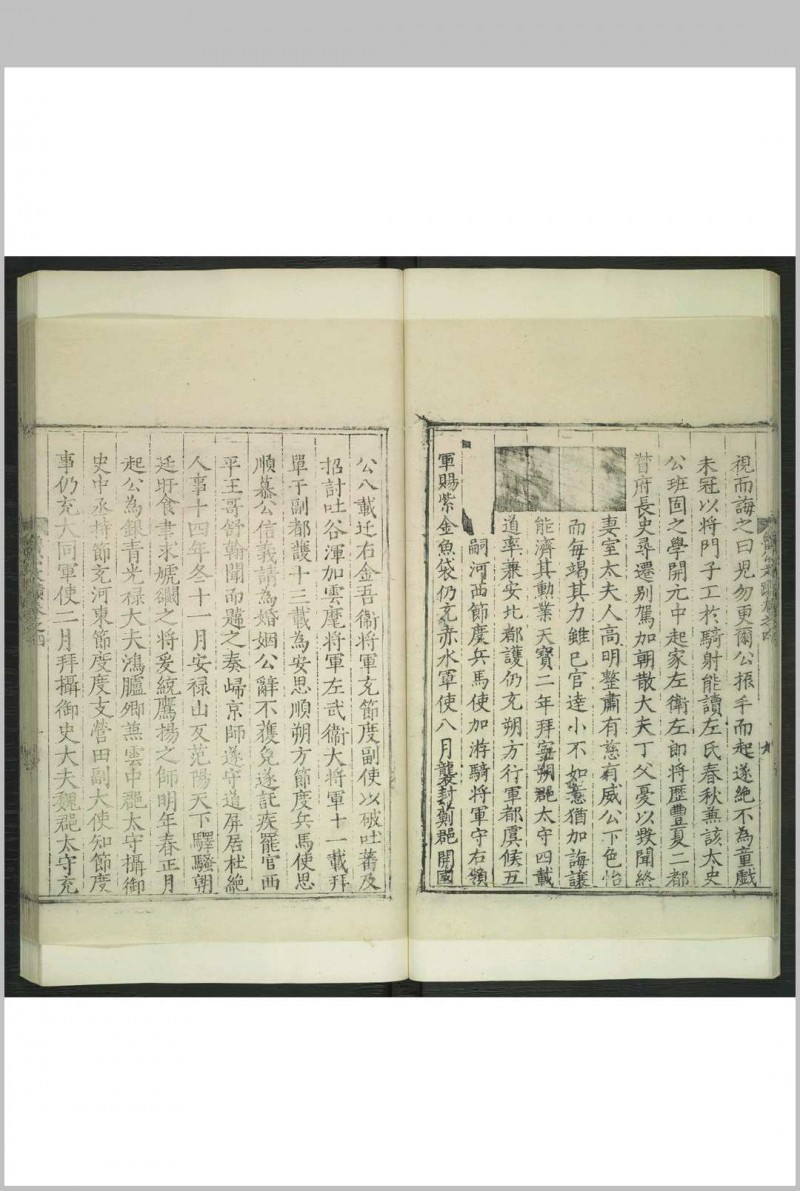 視而誨之曰兒勿更爾公振手而起遂絶不為童戲
未冠以將門子工於騎射能讀左氏春秋兼該太史
公班固之學開元中起家左衛左郎將歷豐夏二都
督府長史尋遷别駕加朝散大夫丁父憂以毀聞終
妻室太夫人高明整肅有慈有威公下色怡
而每竭其力雖已官達小不如意猶加誨讓
能濟其勳業天寶二年拜寧朔郡太守四載
道率兼安北都護仍充朔方行軍都虞候五
嗣河西節度兵馬使加游騎將軍守右領
軍賜紫金魚袋仍充赤水軍使八月襲封薊郡開國
公八載迁右金吾衛將軍充節度副使以破吐蕃及
招討吐谷渾加雲麾將軍左武衛大將軍十一載拜
單于副都護十三載為安思順朔方節度兵馬使思
順慕公信義請為婚姻公辭不獲免遂託疾罷官西
平王哥舒翰聞而韙之奏歸京師遂守道屏居杜絶
人事十四年冬十一月安禄山反范陽天下驛騷朝
廷旰食聿求虓闞之將爰統鷹揚之師明年春正月
起公為銀青光禄大夫鴻臚卿兼雲中郡太守攝御
史中丞持節充河東節度度支營田副大使知節度
事仍充大同軍使二月拜攝御史大夫魏郡太守充